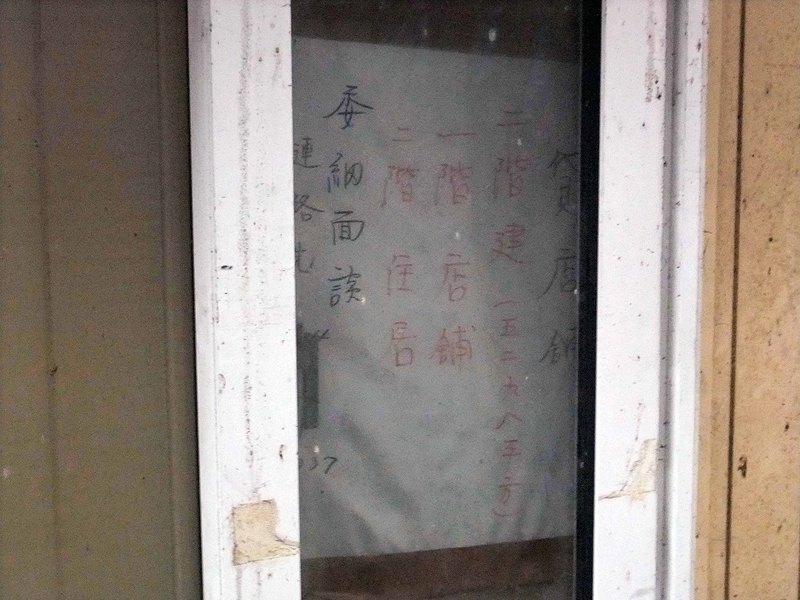 貸店舗
二階建(五二九八平方)
一階店舗
二階住居
委細面談
連絡先